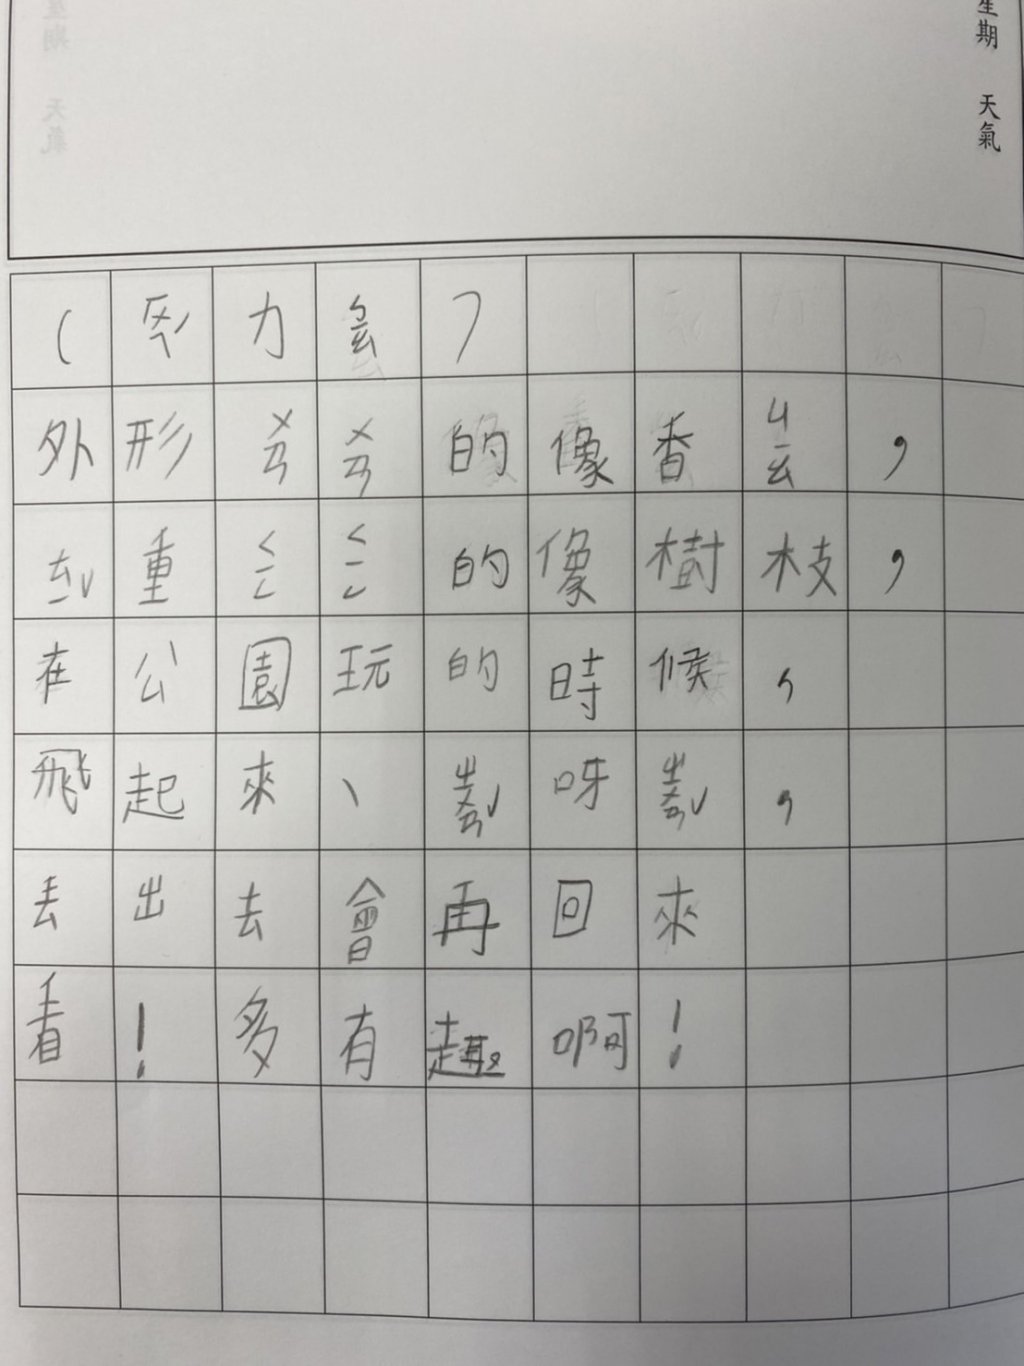 星期 天氣
（ㄏㄨㄟˊ力ㄅㄧㄠ）
外形ㄨㄢㄨㄢ的像香ㄐㄧㄠ，
ㄊㄧˇ重ㄑㄧㄥㄑㄧㄥ的像樹枝，
在公園玩的時候，
飛起來、ㄓㄨㄢˇ呀ㄓㄨㄢˇ，
丟出去會再回來
看！多有趣啊！